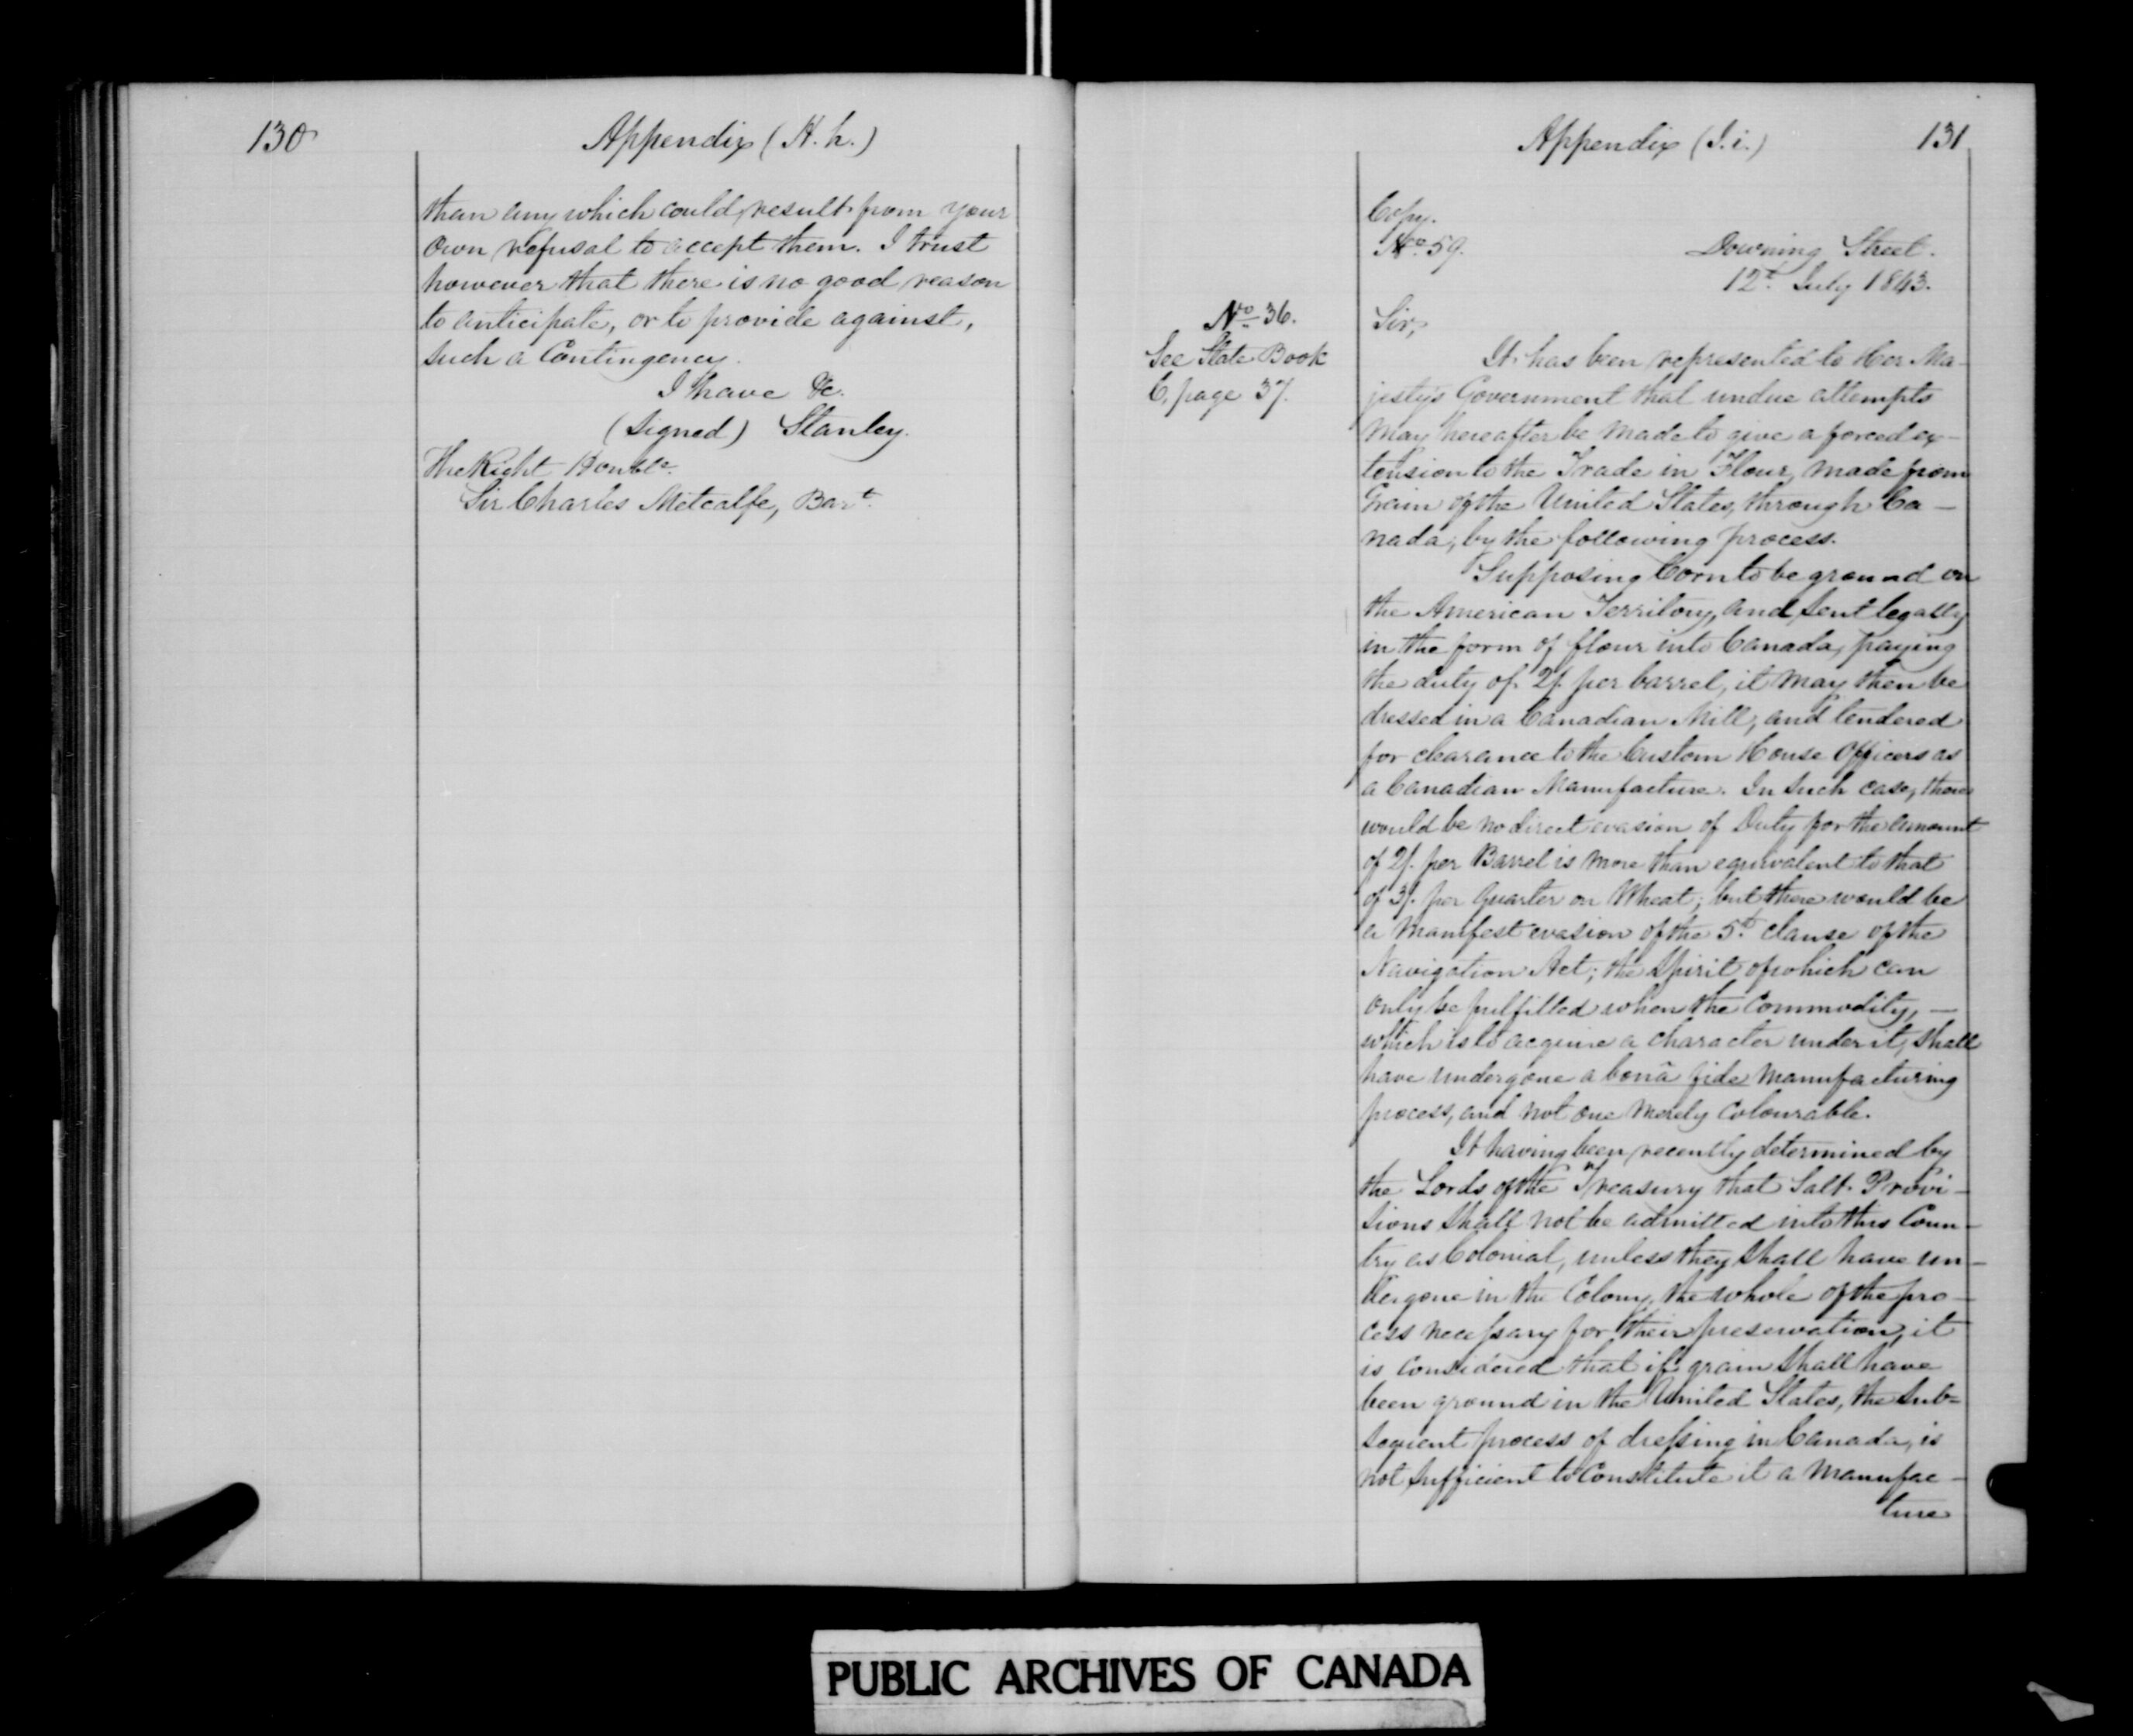 130
Appendix (H. h.)
than any which could result from your
own refusal to accept them. I trust
however that there is no good reason
to anticipate, or to provide against,
such a Contingency.
I have &c.
(Signed) Stanley.
The Right Honble.
Sir Charles Metcalfe, Bart.
Appendix (I. i.)
131
Copy.
No. 59.
Downing Street.
12t. July 1843.
No. 36.
See State Book
C, page 37.
Sir,
It has been represented to Her Ma-
jesty's Government that undue attempts
may hereafter be made to give a forced ex-
tension to the Trade in Flour, made from
Grain of the United States, through Ca-
nada, by the following process.
Supposing Corn to be ground on
the American Territory, and sent legally
in the form of flour into Canada, paying
the duty of 2/. per barrel, it may then be
dressed in a Canadian Mill, and tendered
for clearance to the Custom House Officers as
a Canadian Manufacture. In such case, there
would be no direct evasion of Duty for the amount
of 2/. per Barrel is more than equivalent to that
of 3/. per Quarter on Wheat; but there would be
a manifest evasion of the 5t. clause of the
Navigation Act; the spirit of which can
only be fulfilled when the Commodity, —
which is to acquire a character under it, shall
have undergone a bonâ fide manufacturing
process, and not one merely colourable.
It having been recently determined by
the Lords of the Treasury that Salt Provi-
sions shall not be admitted into this Coun-
try as Colonial, unless they shall have un-
dergone in the Colony, the whole of the pro-
cess necessary for their preservation, it
is considered that if grain shall have
been ground in the United States, the sub=
sequent process of dressing in Canada, is
not sufficient to constitute it a manufac-
ture
PUBLIC ARCHIVES OF CANADA